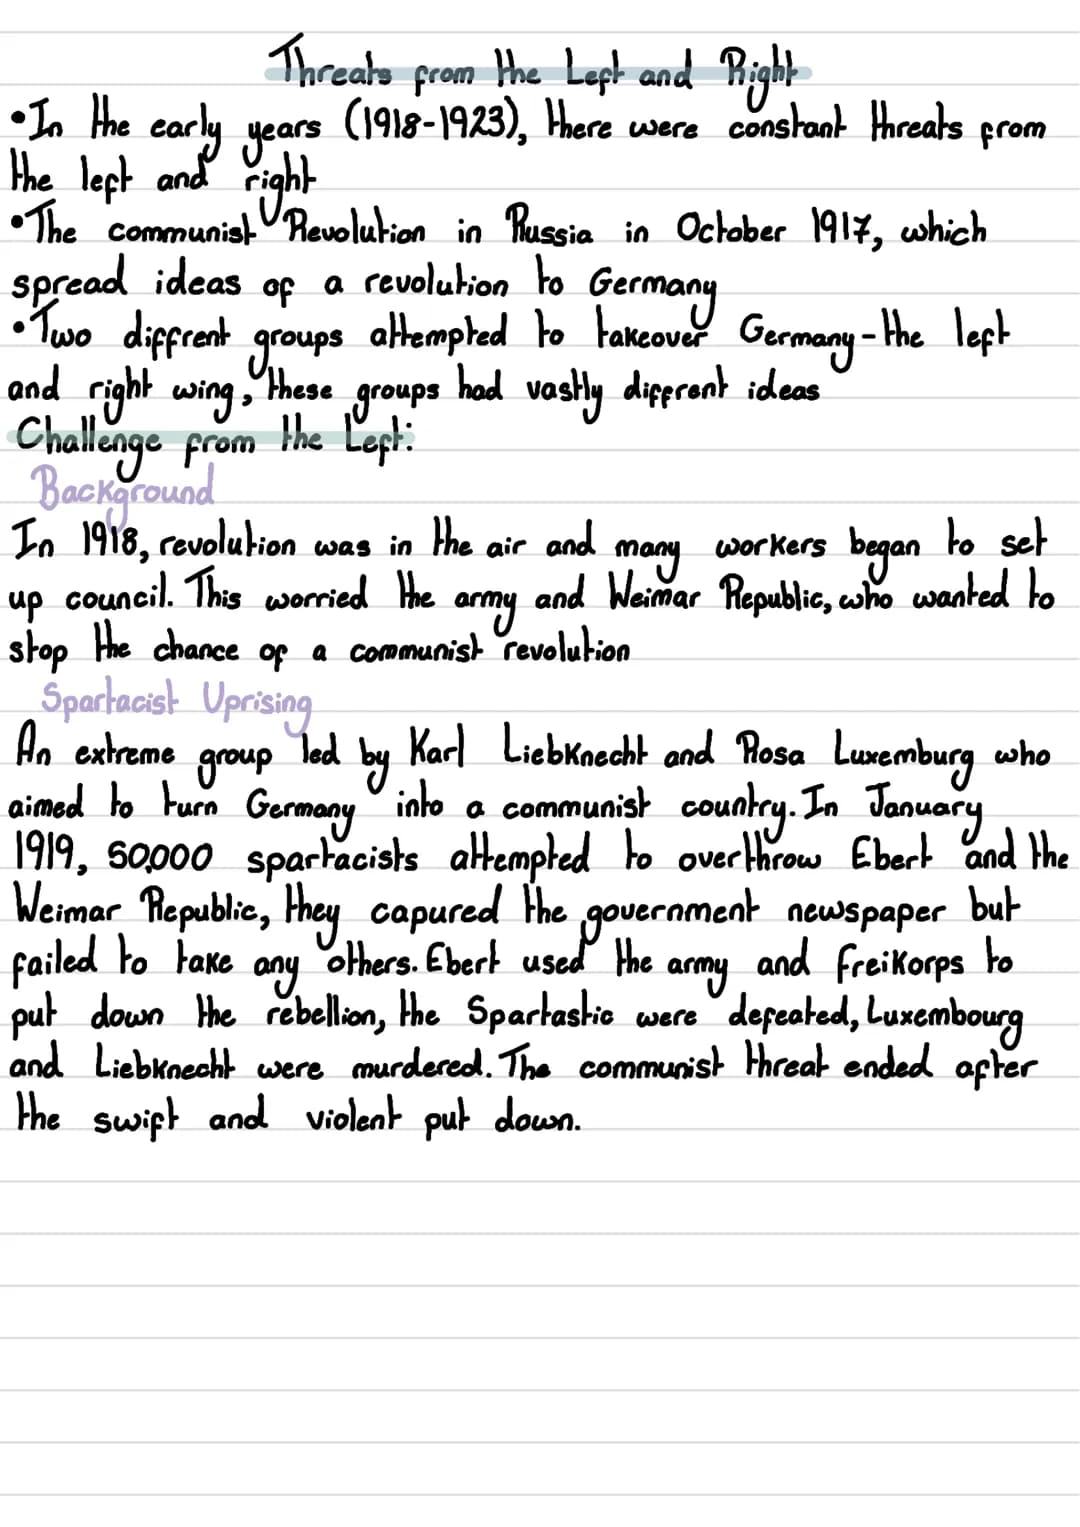 Threats from the Left and Right
•In the early years (1918-1923), there were constant threats from
the left and right
•The communist Revolution in Russia in October 1917, which
spread ideas of a revolution to Germany
•Two diffrent groups attempted to takeover Germany-the left
and right wing, these groups had vastly different ideas
Challenge from the Left:
Background
In 1918, revolution was in the air and many workers began to set
up council. This worried the army and Weimar Republic, who wanted to
stop the chance of a communist revolution
Spartacist Uprising
An extreme group led by Karl Liebknecht and Rosa Luxemburg who
aimed to turn Germany into a communist country. In January
1919, 50,000 spartacists attempted to overthrow Ebert and the
Weimar Republic, they capured the government newspaper but
failed to take any others. Ebert used the army and freikorps to
put down the rebellion, the Spartastic were defeated, Luxembourg
and Liebknecht were murdered. The communist threat ended after
the swift and violent put down.